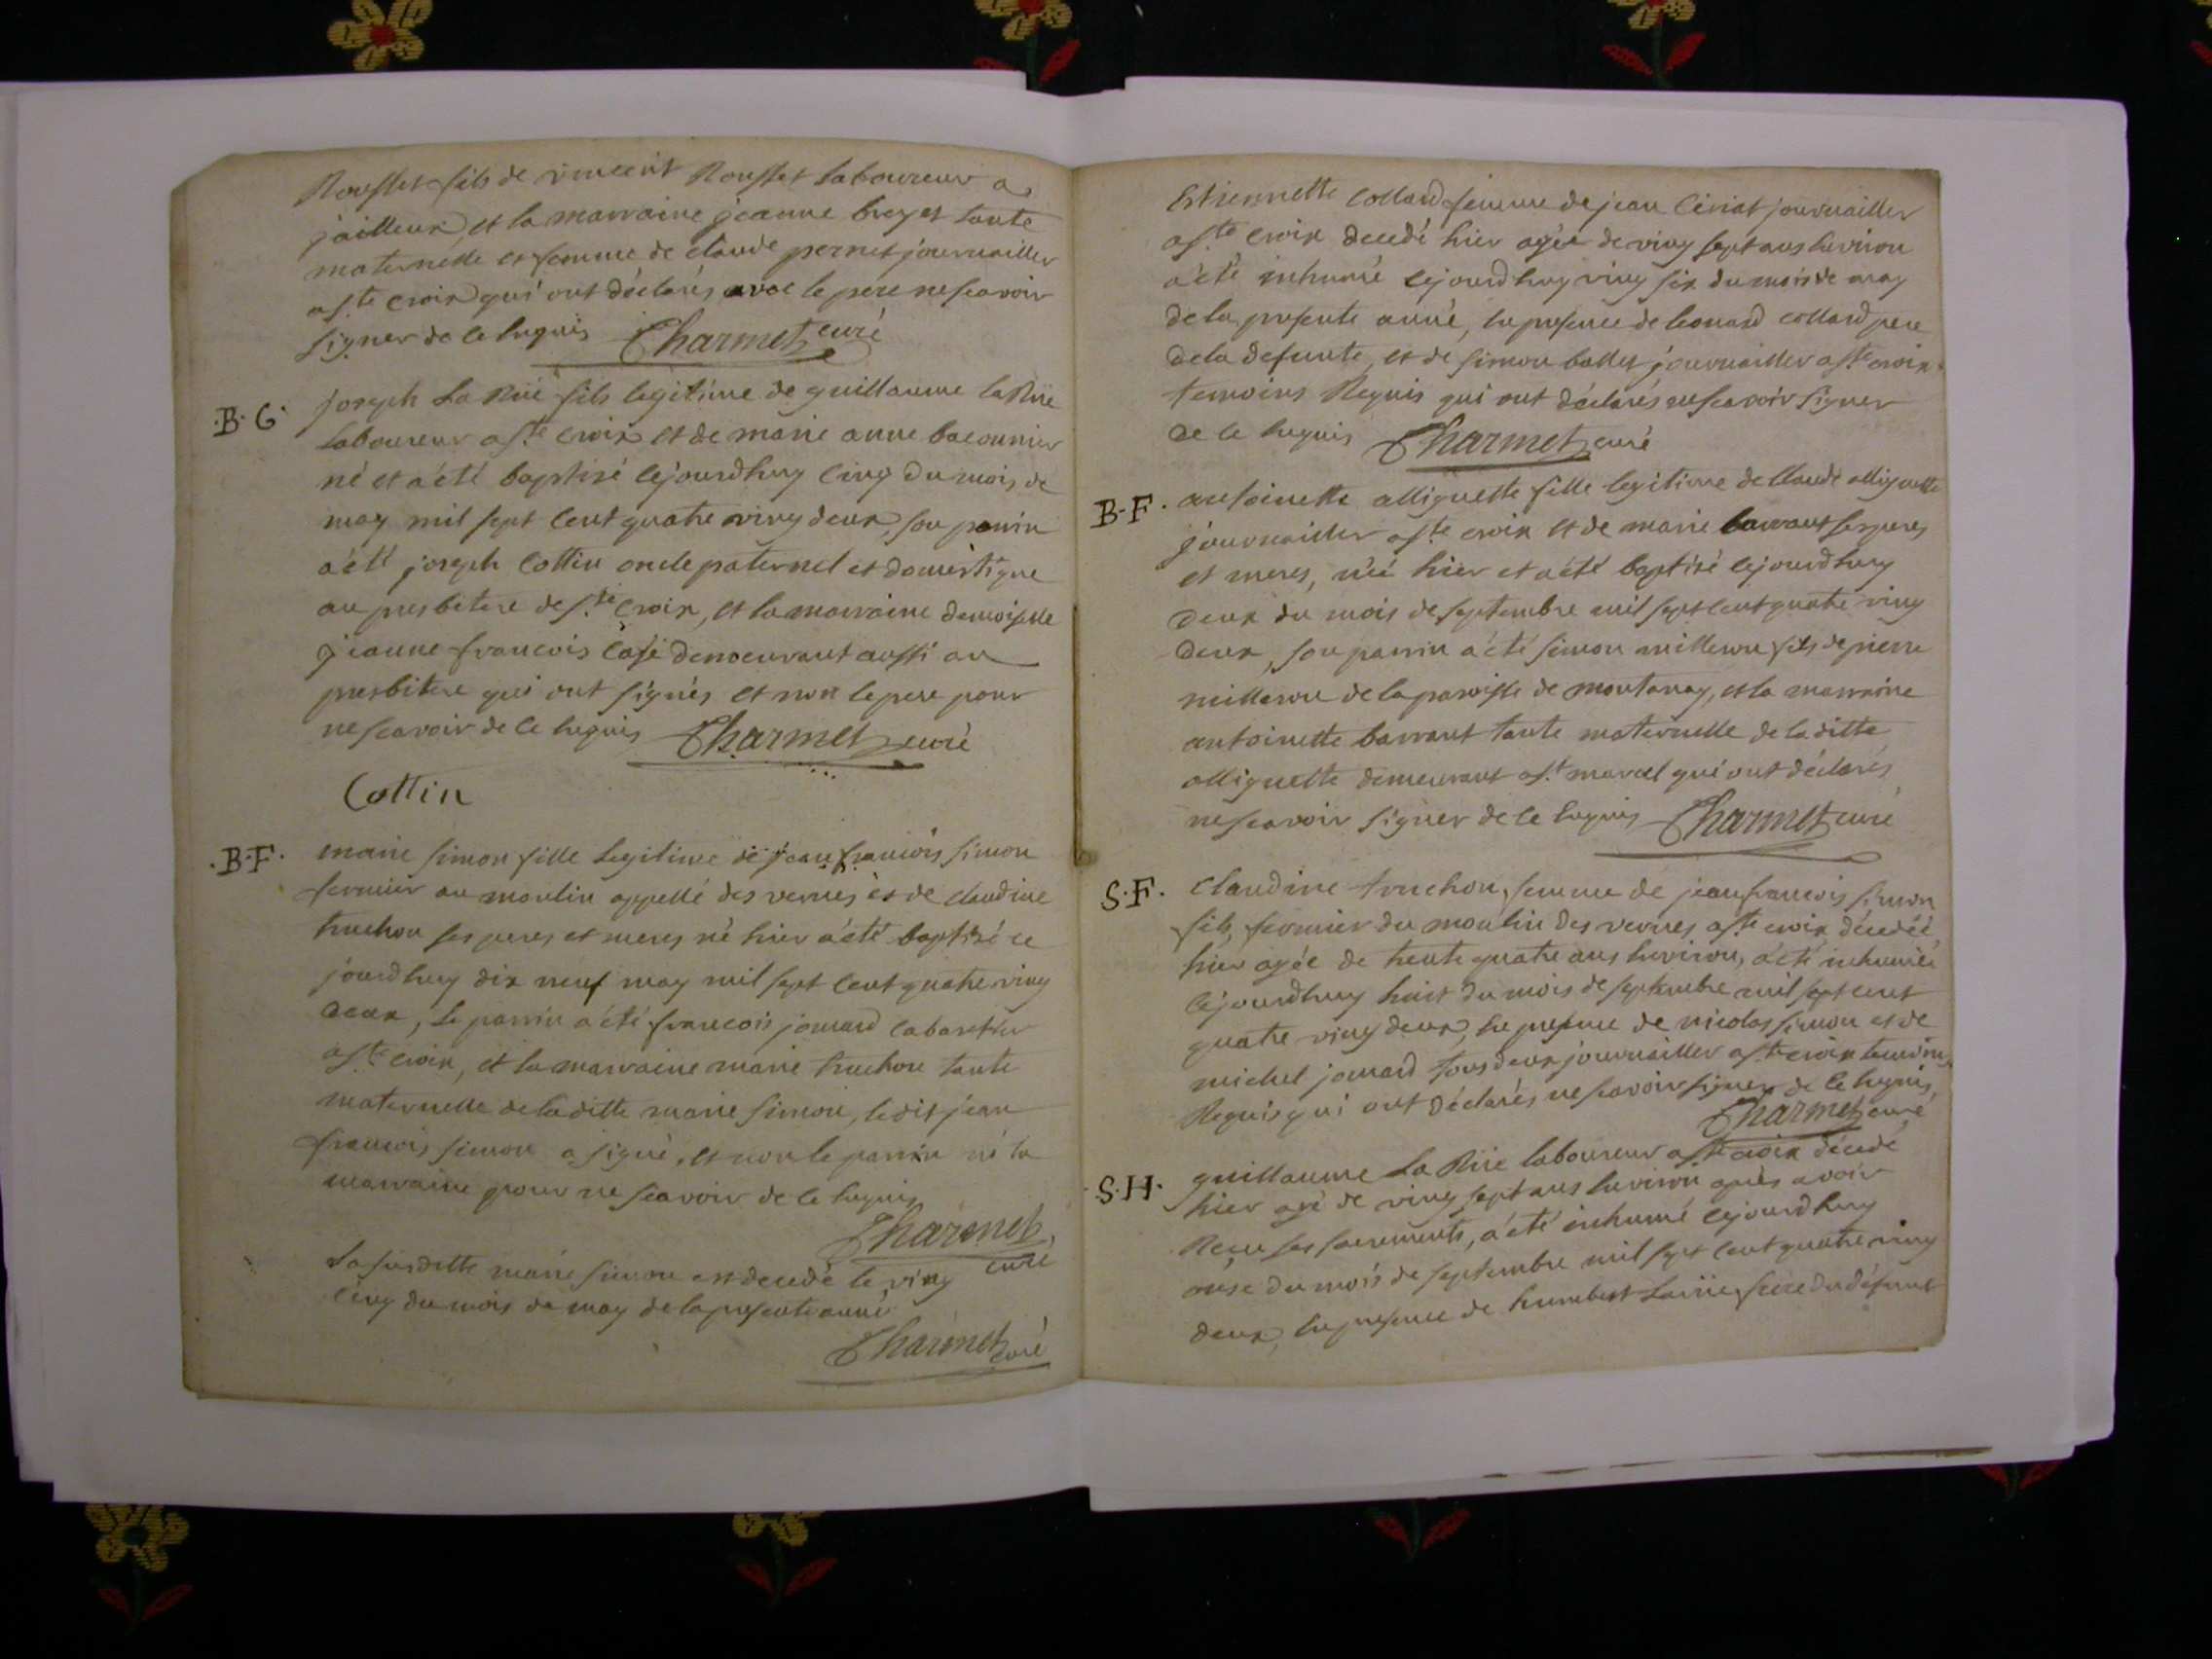 Rousset fils de vincent Rousset laboureur a
jailleux et la marraine jeanne breyet tante
maternelle et femme de claude pernet journaillier
a ste croix qui ont déclarés avec le pere ne scavoir
signer de ce enquis Charmet curé
B. G. joseph La Rüe fils legitime de guillaume la Rüe
laboureur a ste croix et de marie anne baconnier
né et a été baptisé cejourdhuy cinq du mois de
may mil sept cent quatre ving deux, son parrin
a été joseph Cottin oncle paternel et domestique
au presbitere de ste croix, et la marraine demoiselle
jeanne francois demeurant aussi au
presbitere qui ont signés et non le pere pour
ne scavoir de ce enquis Charmet curé
Cottin
B. F. marie simon fille legitime de jean francois simon
fermier au moulin appellé des vernes et de claudine
truchon ses peres et meres né hier a été baptisé ce
jourdhuy dix neuf may mil sept cent quatre ving
deux, le parrin a été francois jomard cabaretier
a ste croix, et la marraine marie truchon tante
maternelle de laditte marie simon, ledit jean
francois simon a signé, et non le parrin né la
marraine pour ne scavoir de ce enquis
Charmet curé
La susditte marie simon est decedé le ving
cinq du mois de may de la presente anné
Charmet curé
Estiennette Collard femme de jean journaillier
a ste croix decedé hier agée de ving sept ans environ
a été inhumé cejourdhuy ving six du mois de may
de la presente anné, en presence de leonard collard pere
de la defunte, et de simon ballet journaillier a ste croix
temoins Requis qui ont déclarés ne scavoir signer
de ce enquis Charmet curé
B. F. antoinette alliguette fille legitime de Claude alliguette
journaillier a ste croix et de marie barraut ses peres
et meres, née hier et a été baptisé cejourdhuy
deux du mois de septembre mil sept cent quatre ving
deux, son parrin a été simon milleron fils de pierre
milleron de la paroisse de montanay, et la marraine
antoinette barraut tante maternelle de laditte
alliguette demeurant a st marcel qui ont déclarés
ne scavoir signer de ce enquis Charmet curé
S. F. Claudine truchon, femme de jean francois simon
fils, fermier du moulin des vernes a ste croix décedéé
hier agée de trente quatre ans environ, a été inhumée
cejourdhuy huit du mois de septembre mil sept cent
quatre ving deux, en presence de nicolas simon et de
michel jomard tous deux journaillier a ste croix temoins
Requis qui ont déclarés ne scavoir signer de ce enquis,
Charmet curé
S. H. guillaume La Rüe laboureur a ste croix décedé
hier agé de ving sept ans environ après avoir
Reçu ses sacrements, a été inhumé cejourdhuy
onze du mois de septembre mil sept cent quatre ving
deux, en presence de humbert Larüe, frere du défunt